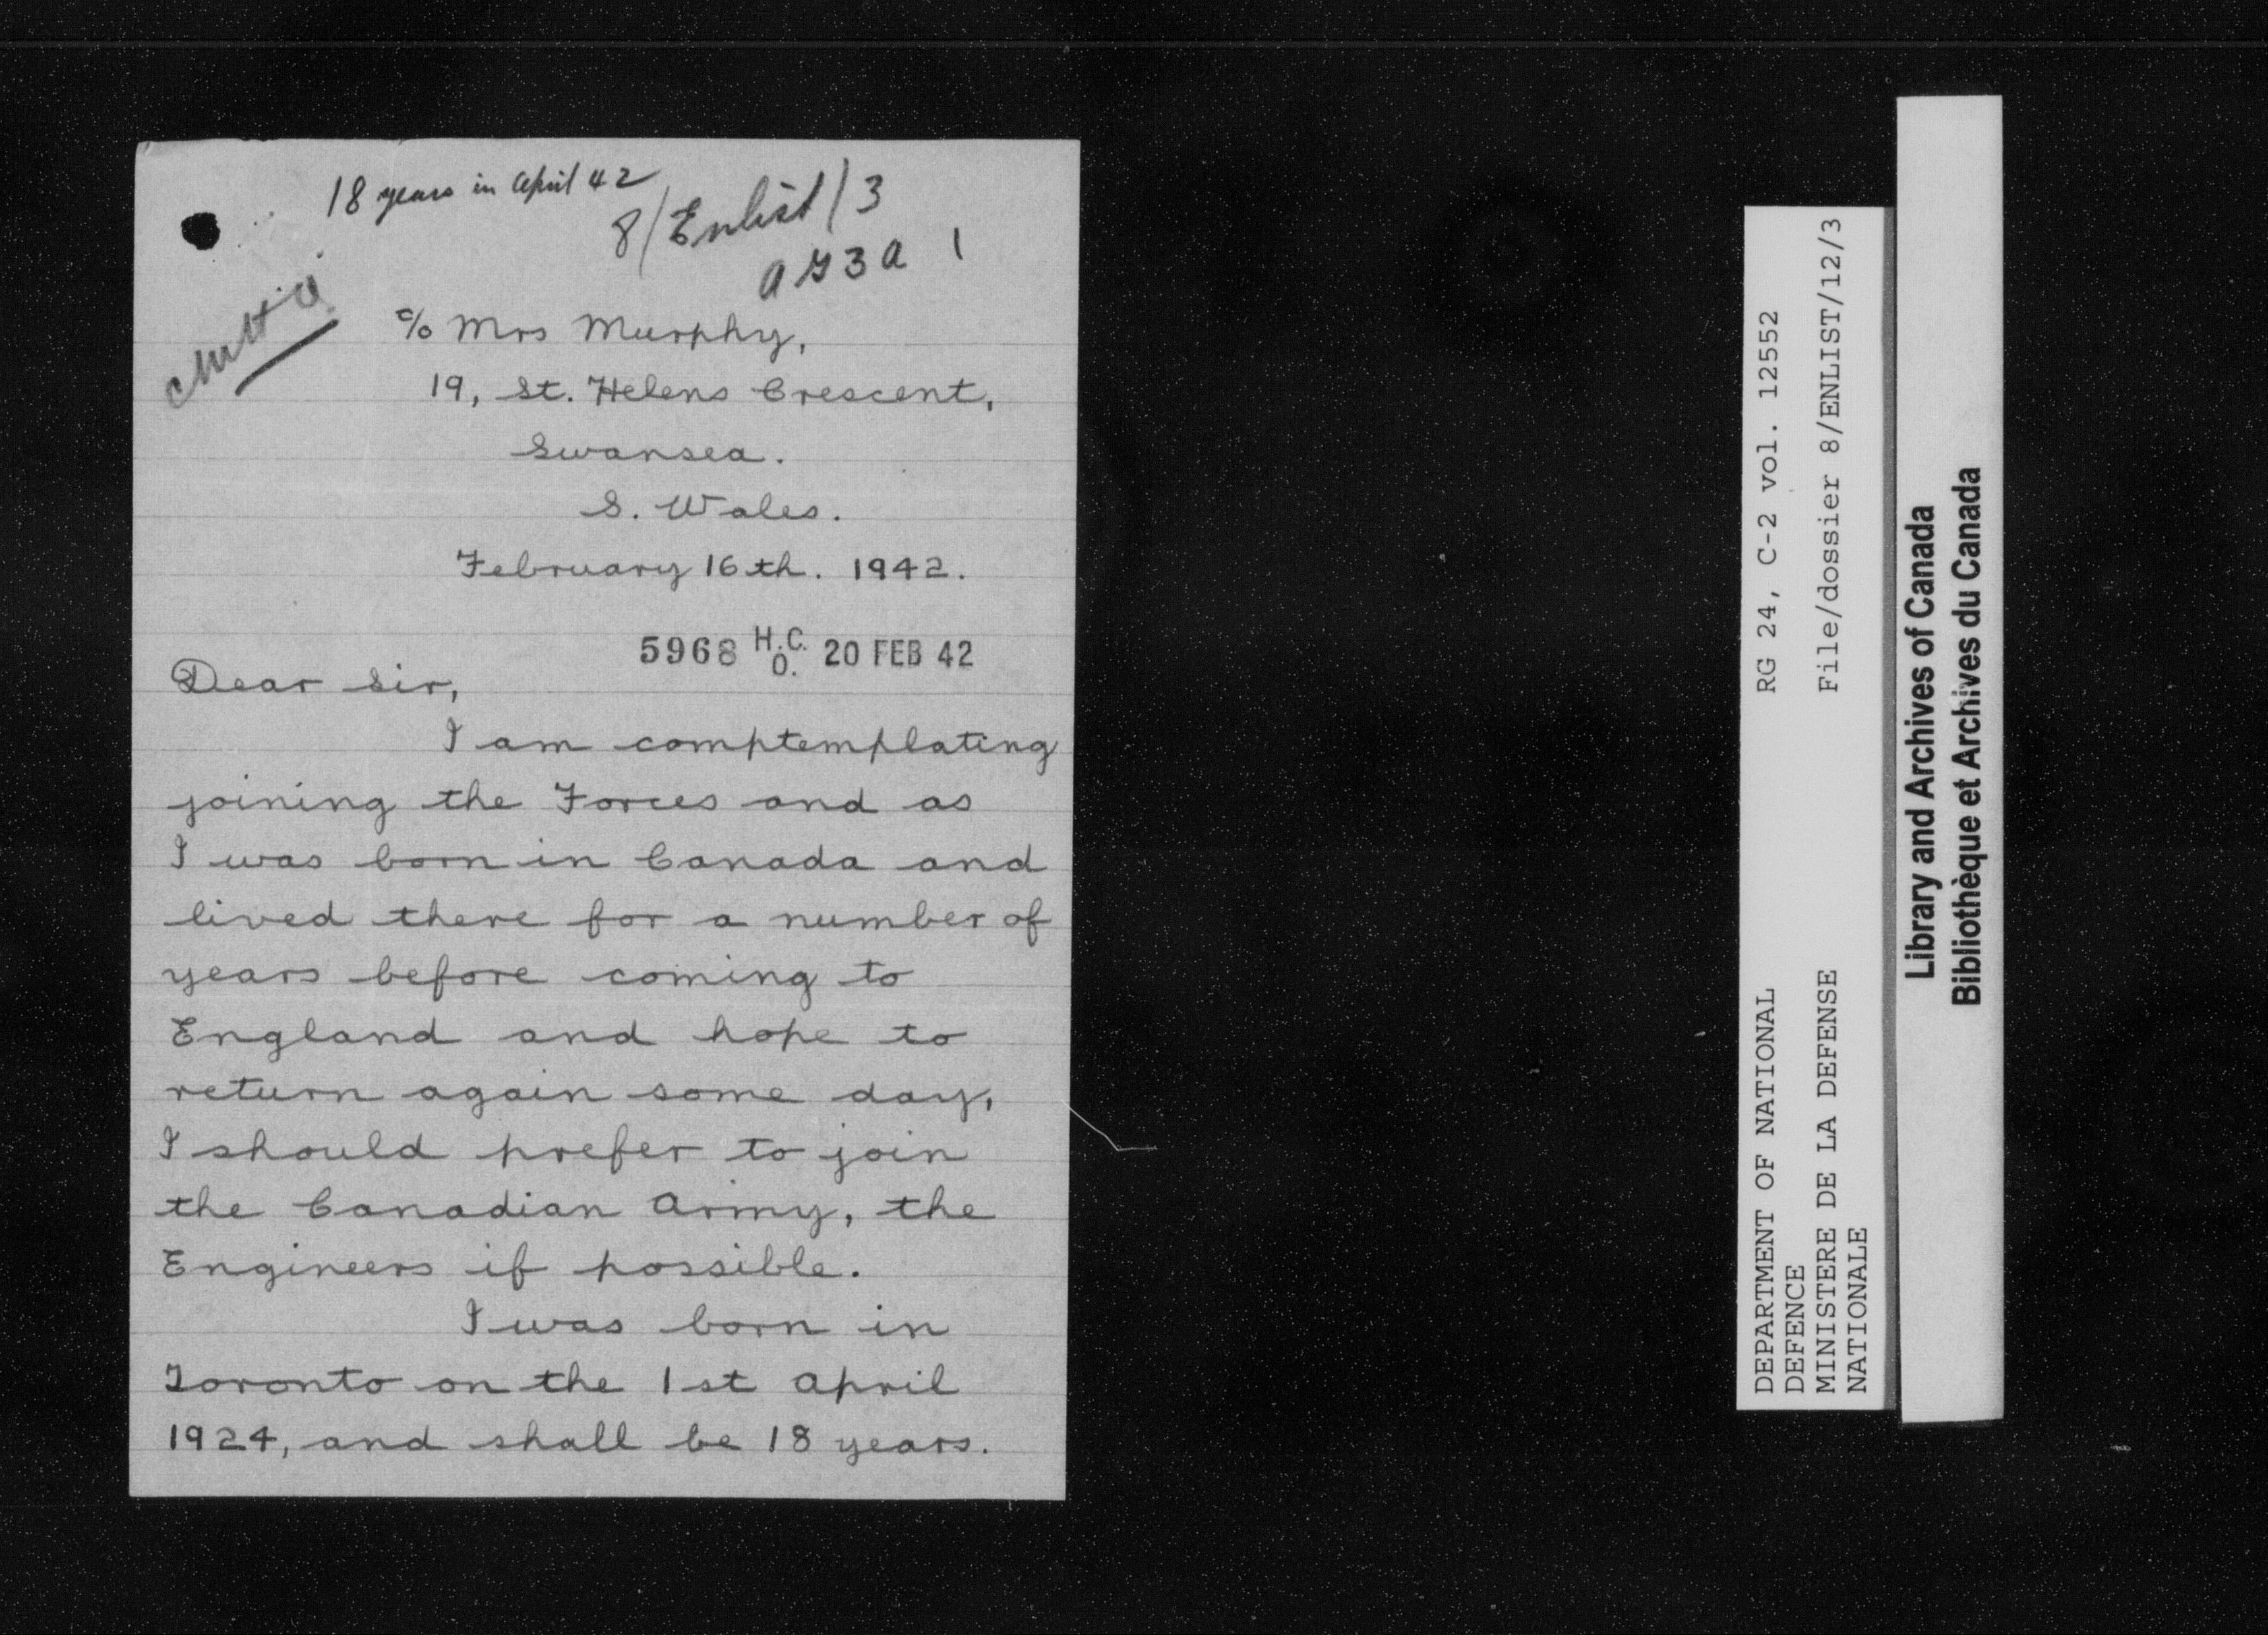 18 years in April 42
8/Enlist/3
AG3A 1
c/o Mrs Murphy,
19, St. Helens Crescent,
Swansea.
S. Wales.
February 16th. 1942.
5968 H.C.O. 20 FEB 42
Dear Sir,
I am comptemplating
joining the Forces and as
I was born in Canada and
lived there for a number of
years before coming to
England and hope to
return again some day,
I should prefer to join
the Canadian Army, the
Engineers if possible.
I was born in
Toronto on the 1st April
1924, and shall be 18 years.
RG 24, C-2 vol. 12552
File/dossier 8/ENLIST/12/3
DEPARTMENT OF NATIONAL
DEFENCE
MINISTERE DE LA DEFENSE
NATIONALE
Library and Archives of Canada
Bibliothèque et Archives du Canada